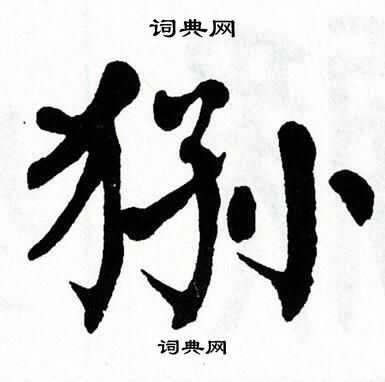 词典网
狲
词典网